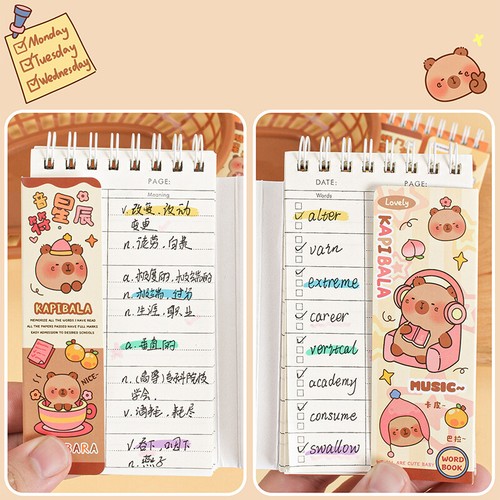 Monday
Tuesday
Wednesday
PAGE:
Meaning
v. 改变，改动
变更
n. 徒劳，白费
a. 极度的，极端的
n. 极端，过分
n. 生涯，职业
a. 垂直的
n. (高等)专科院校
学会
v. 消耗，耗尽
v. 吞下，咽下
n. 燕子
音符星辰
KAPIBALA
MEMORIZE ALL THE WORDS I HAVE READ
ALL THE PAPERS PASSED HAVE FULL MARKS
EACH ADMISSION TO DESIRED SCHOOLS
NICE
BARA
DATE:
PAGE:
Words
alter
vain
extreme
career
vertical
academy
consume
swallow
Lovely
KAPIBALA
MUSIC~
卡皮~
巴拉~
ARE CUTE BABY
WORD
BOOK